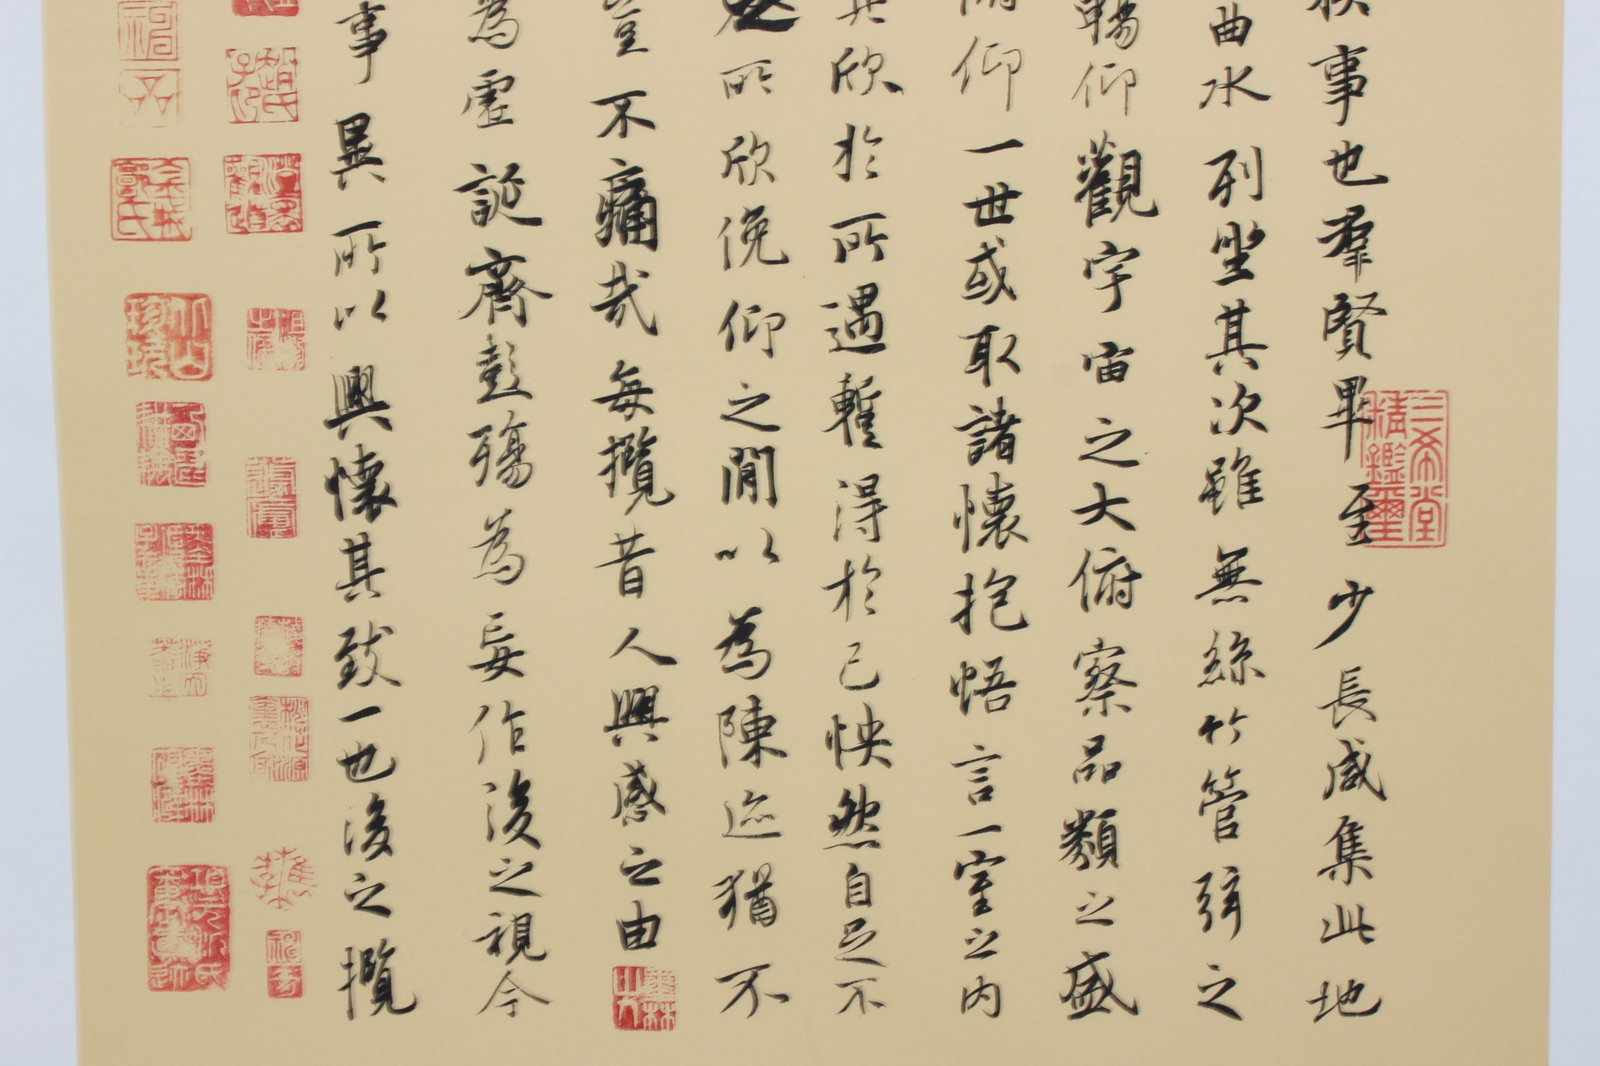 禊事也羣賢畢至少長咸集此地
曲水列坐其次雖無絲竹管弦之
暢仰觀宇宙之大俯察品類之盛
俯仰一世或取諸懷抱悟言一室之內
其欣於所遇暫得於己怏然自足不
所欣俛仰之閒以為陳迹猶不
豈不痛哉每攬昔人興感之由
為虛誕齊彭殤為妄作後之視今
事異所以興懷其致一也後之攬
三希堂
精鑑璽